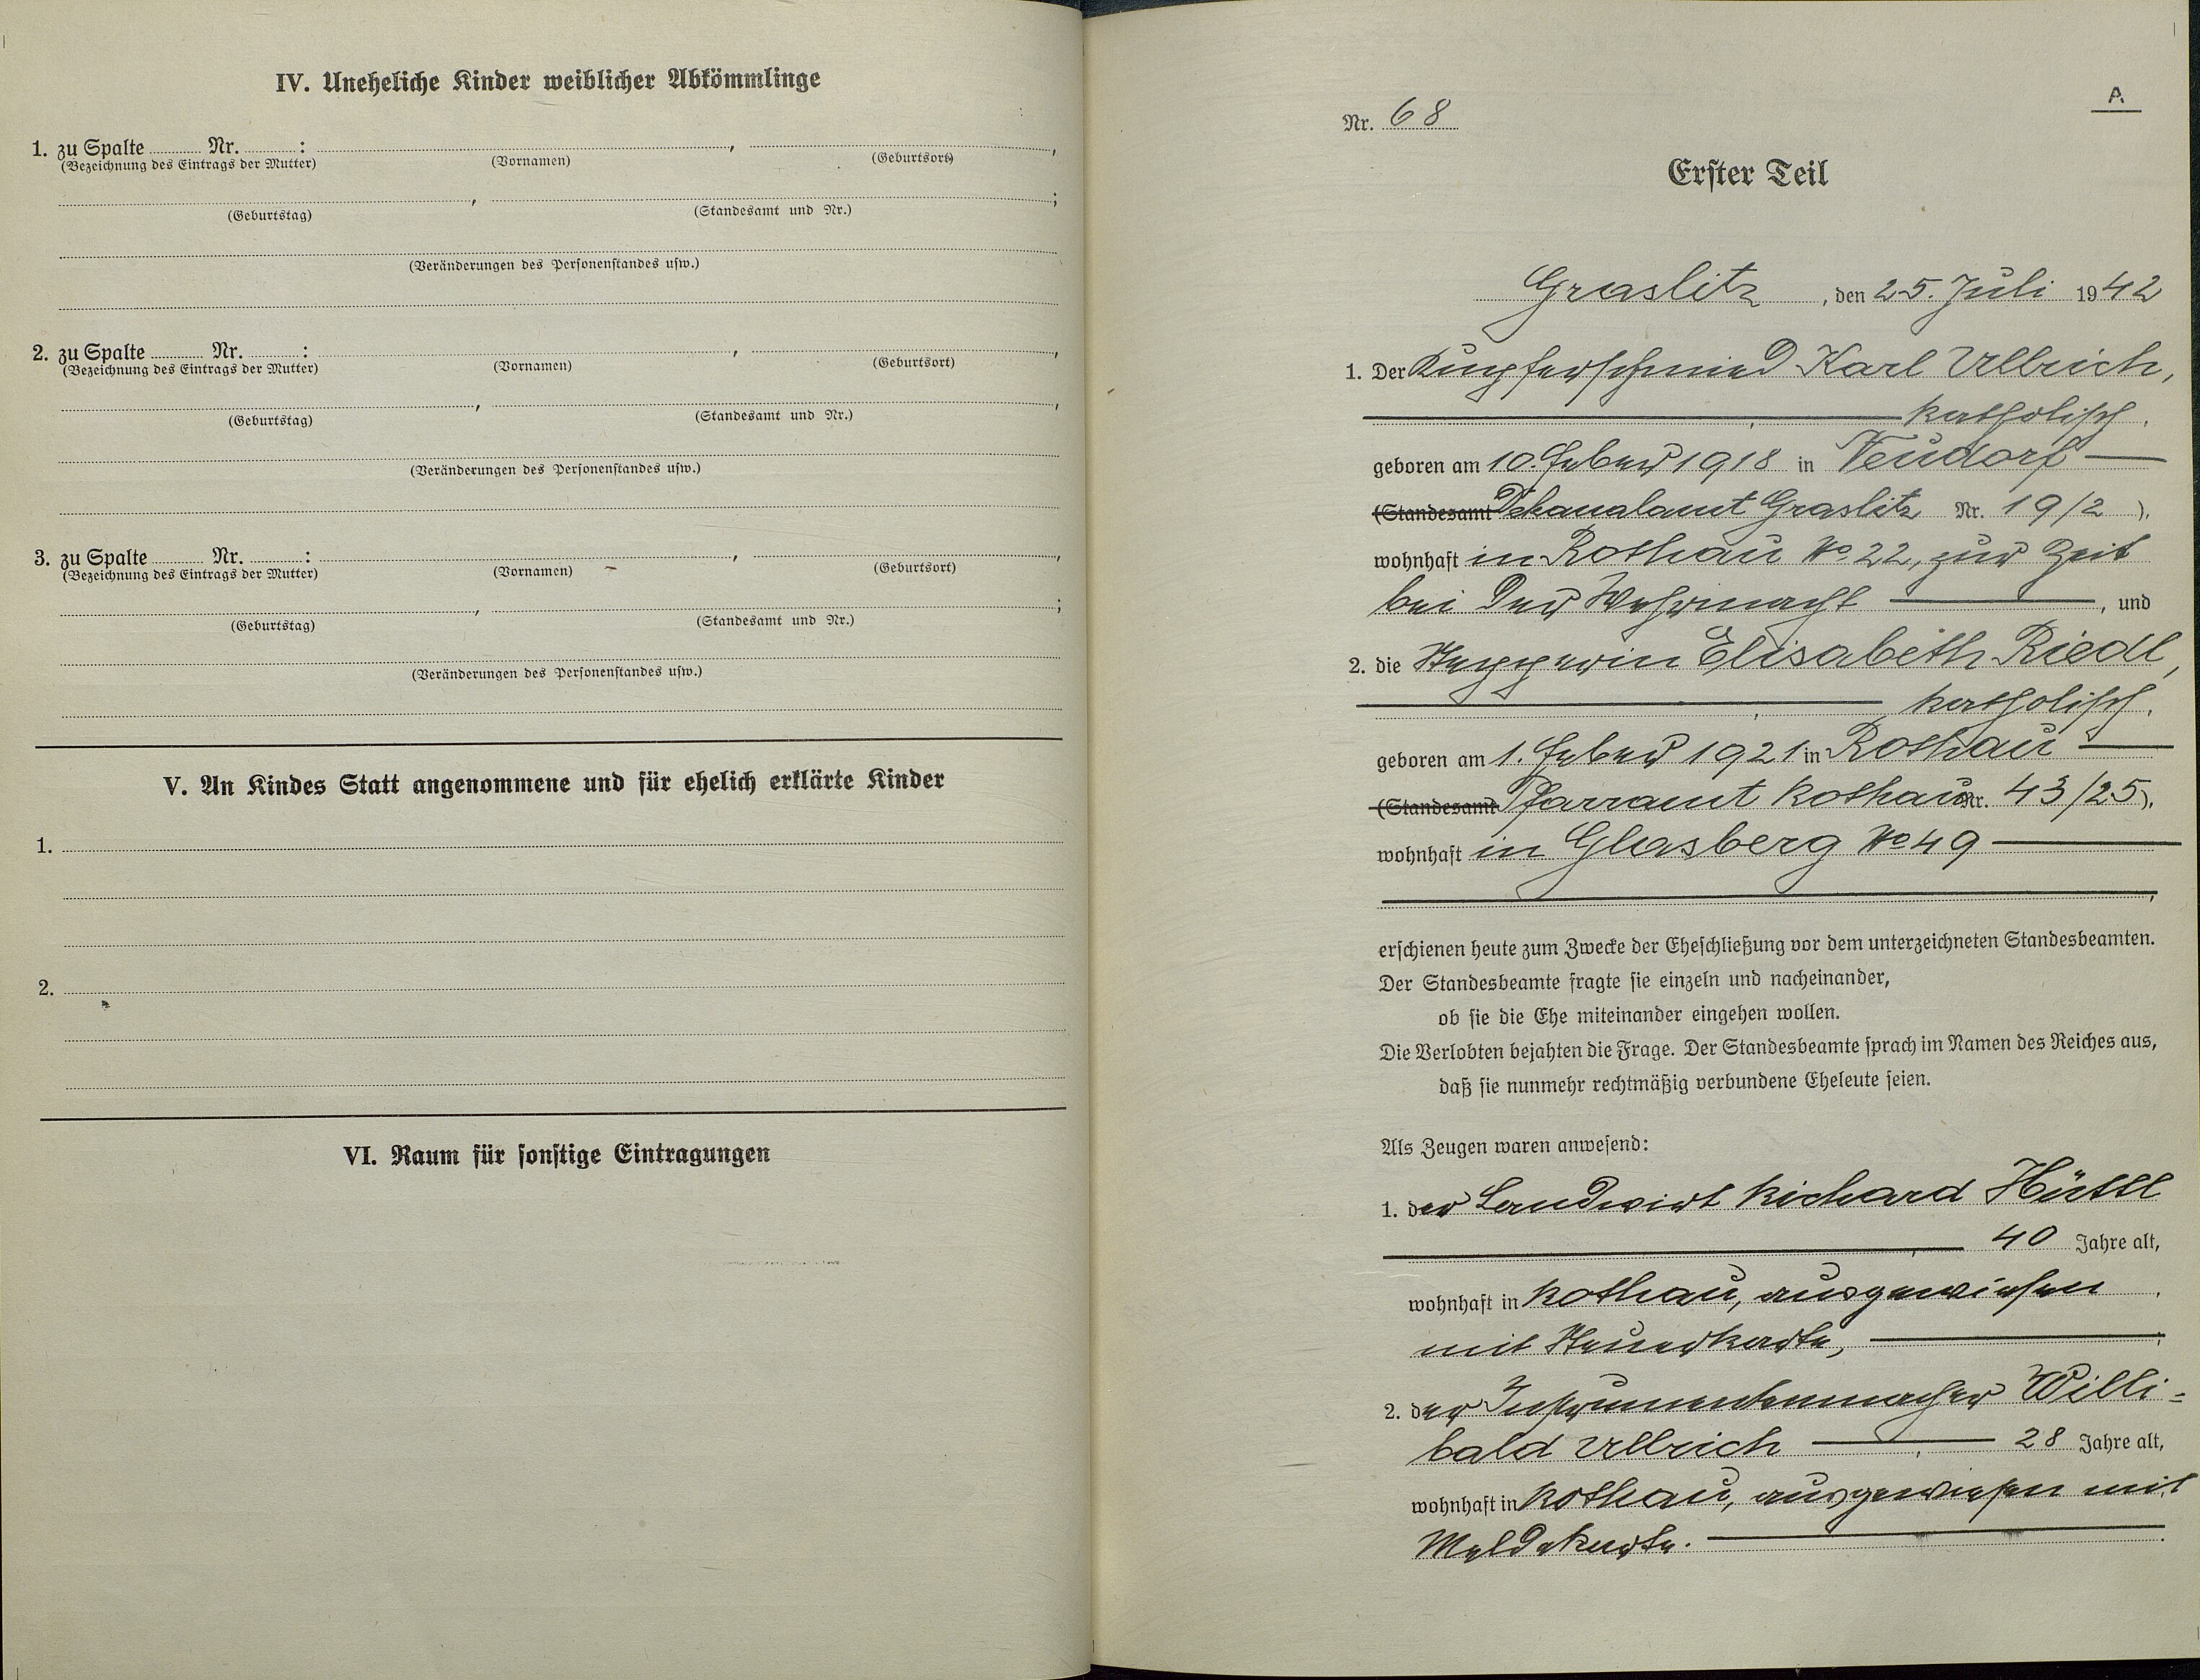 IV. Uneheliche Kinder weiblicher Abkömmlinge
1. zu Spalte ......... Nr. ......... : , ,
(Bezeichnung des Eintrags der Mutter) (Vornamen) (Geburtsort)
, ;
(Geburtstag) (Standesamt und Nr.)
(Veränderungen des Personenstandes usw.)
2. zu Spalte ......... Nr. ......... : , ,
(Bezeichnung des Eintrags der Mutter) (Vornamen) (Geburtsort)
, ,
(Geburtstag) (Standesamt und Nr.)
(Veränderungen des Personenstandes usw.)
3. zu Spalte ......... Nr. ......... : , ,
(Bezeichnung des Eintrags der Mutter) (Vornamen) (Geburtsort)
, ;
(Geburtstag) (Standesamt und Nr.)
(Veränderungen des Personenstandes usw.)
V. An Kindes Statt angenommene und für ehelich erklärte Kinder
1.
2.
VI. Raum für sonstige Eintragungen
A
Nr. 68
Erster Teil
Graslitz, den 25. Juli 1942
1. Der Kupferschmied Karl Ullrich,
katholisch,
geboren am 10. Feber 1918 in Neudorf
(Standesamt Dekanalamt Graslitz Nr. 19/2 ),
wohnhaft in Rothau No 22, zur Zeit
bei der Wehrmacht , und
2. die Stepperin Elisabeth Riedl,
katholisch,
geboren am 1. Feber 1921 in Rothau
(Standesamt Pfarramt Rothau Nr. 43/25),
wohnhaft in Glasberg No 49
,
erschienen heute zum Zwecke der Eheschließung vor dem unterzeichneten Standesbeamten.
Der Standesbeamte fragte sie einzeln und nacheinander,
ob sie die Ehe miteinander eingehen wollen.
Die Verlobten bejahten die Frage. Der Standesbeamte sprach im Namen des Reiches aus,
daß sie nunmehr rechtmäßig verbundene Eheleute seien.
Als Zeugen waren anwesend:
1. der Landwirt Richard Hüttl
, 40 Jahre alt,
wohnhaft in Rothau, ausgewiesen ,
mit Steuerkarte,
2. der Instrumentenmacher Willi=
bald Ullrich , 28 Jahre alt,
wohnhaft in Rothau, ausgewiesen mit
Meldekarte.